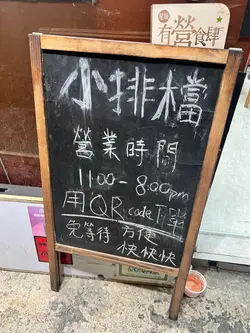 有營食肆
小排檔
營業時間
11:00-8:00pm
用QR code下單
免等待 方便
快快快